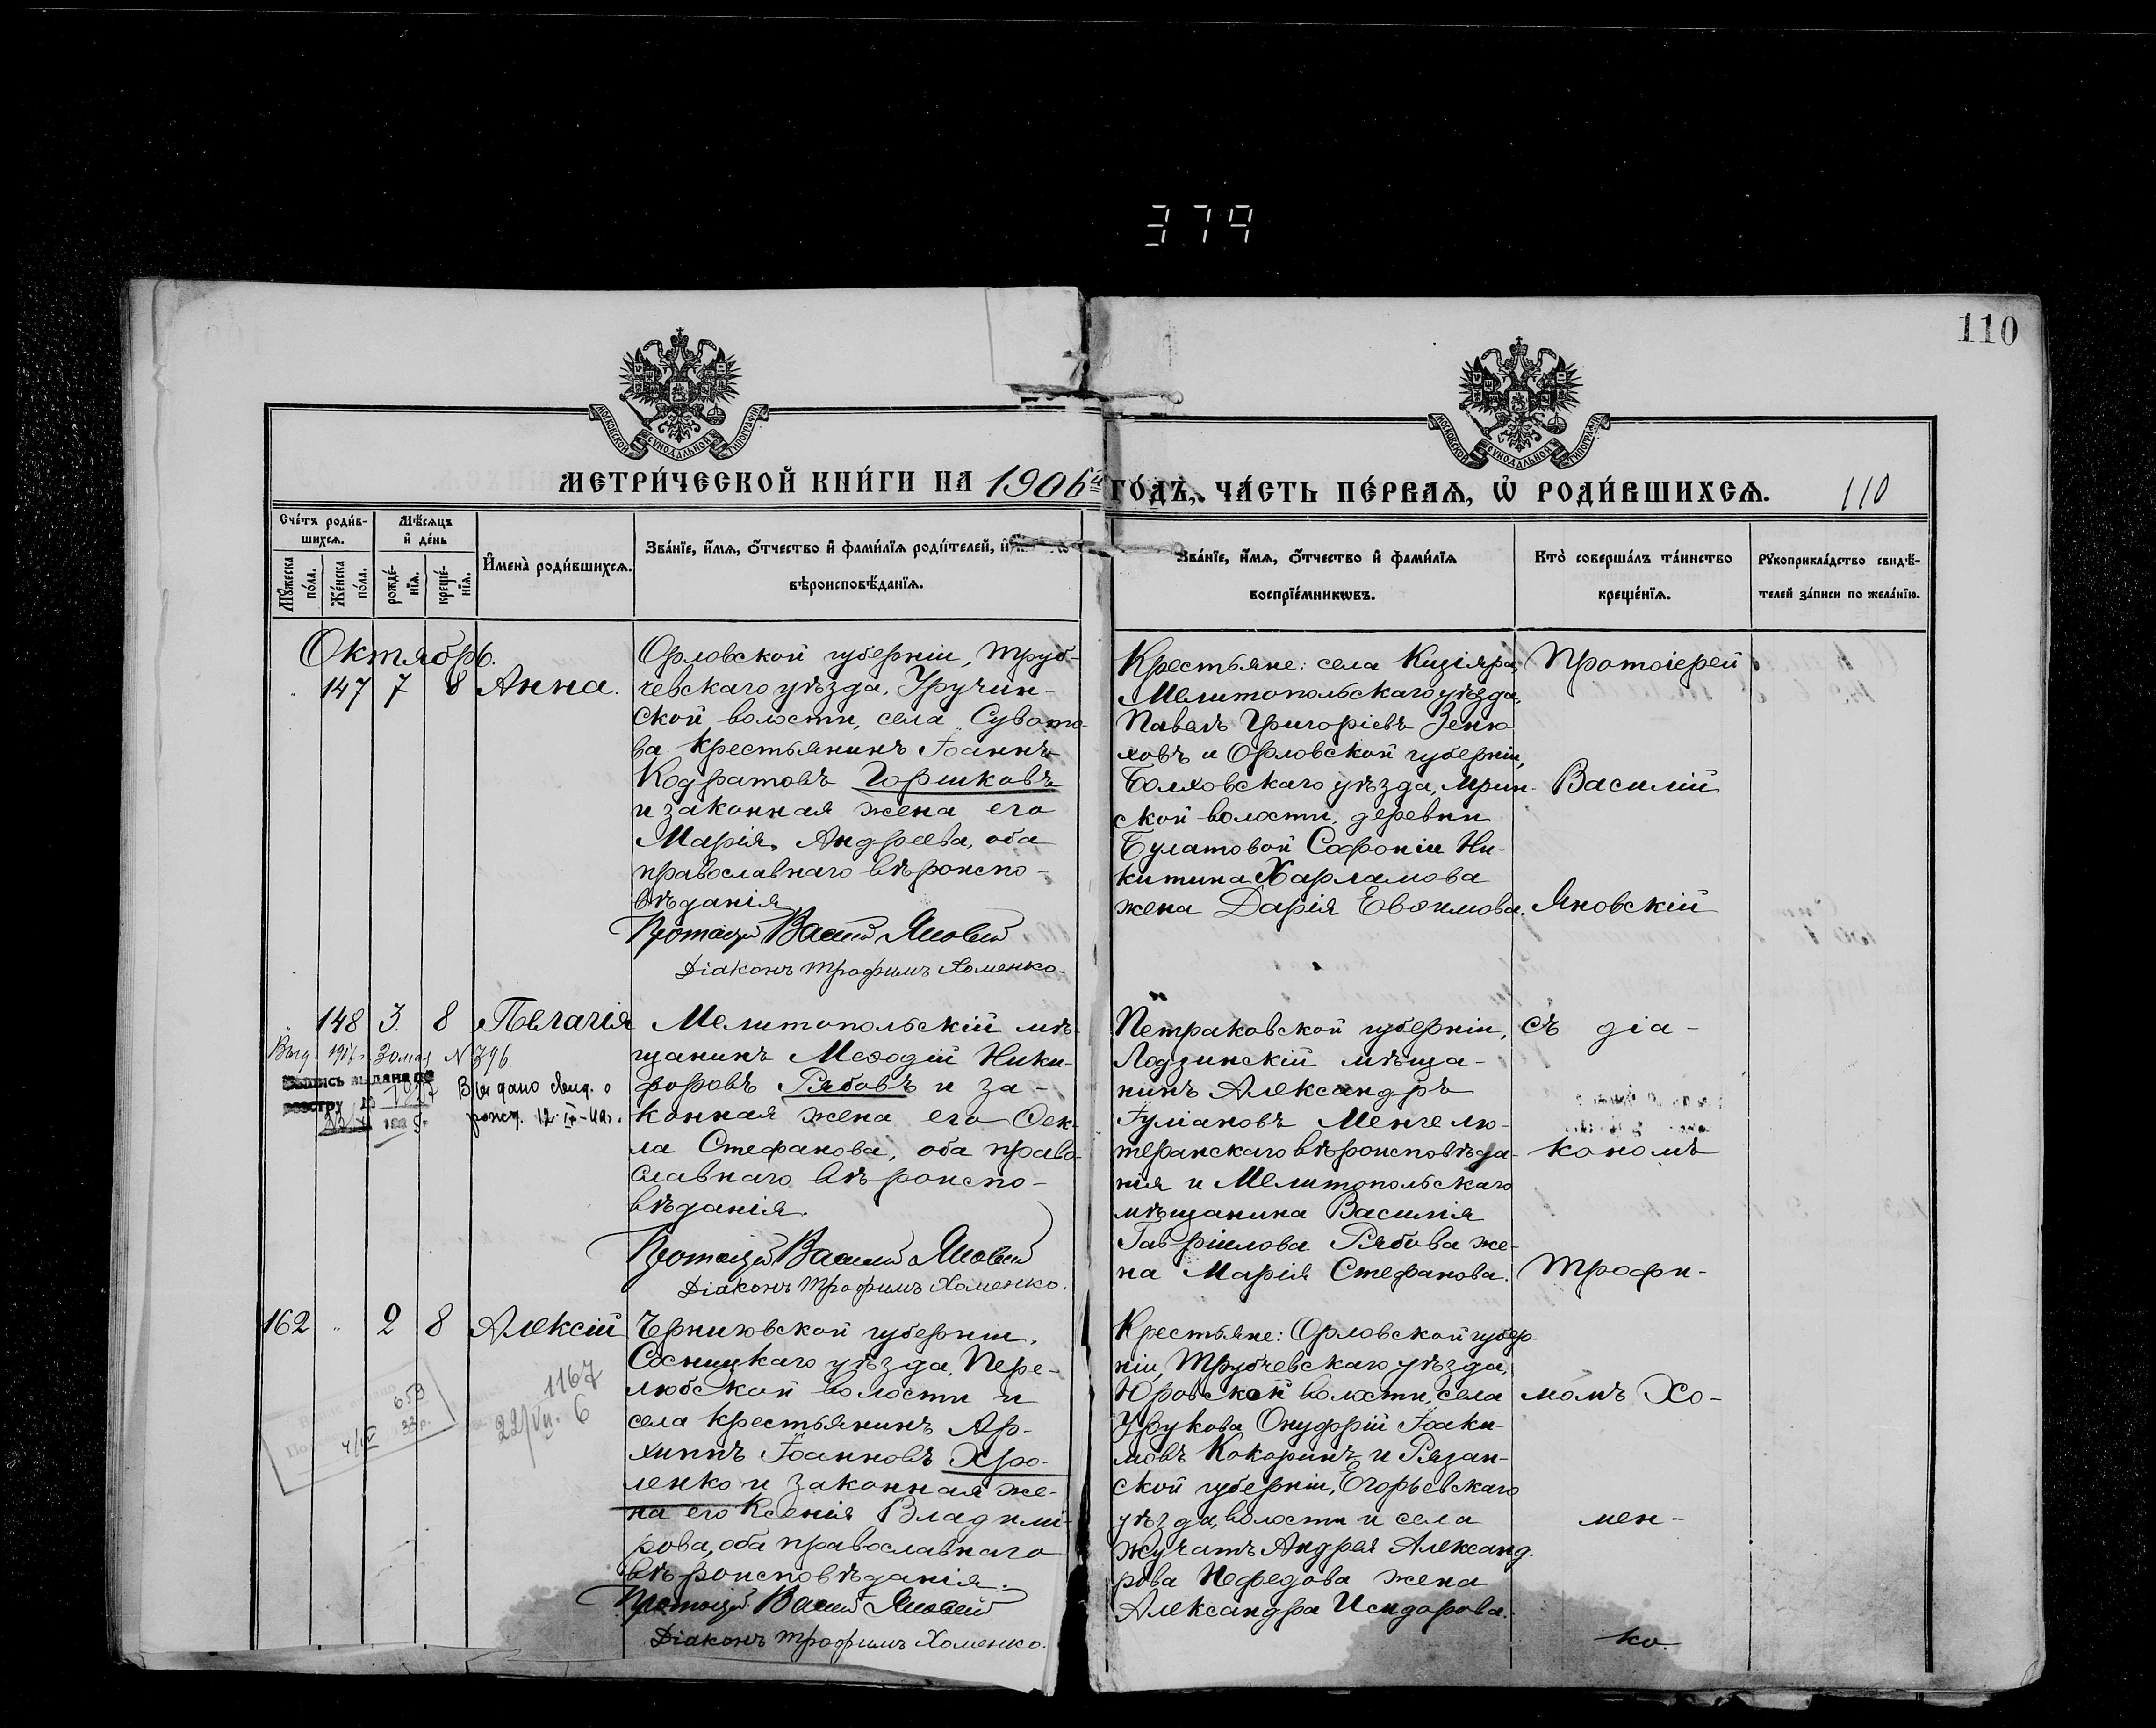 379
110
МОСКОВСКОЙ СѴНОДАЛЬНОЙ ТИПОГРАФІИ
МОСКОВСКОЙ СѴНОДАЛЬНОЙ ТИПОГРАФІИ
МЕТРИ́ЧЕСКОЙ КНИ́ГИ НА 1906й ГО́ДЪ, ЧА́СТЬ ПЕ́РВАѦ, Ѡ҆ РОДИ́ВШИХСѦ. 110
Сче́тъ роди́в-
шихсѧ.
Мꙋ́жеска
по́ла.
Же́нска
по́ла.
Мѣ́сѧцъ
и҆ де́нь
рожде́-
нїѧ.
креще́-
нїѧ.
И҆мена̀ роди́вшихсѧ.
Зва́нїе, и҆́мѧ, ѻ҆́тчество и҆ фами́лїѧ роди́телей, и҆
вѣроисповѣ́данїѧ.
Зва́нїе, и҆́мѧ, ѻ҆́тчество и҆ фами́лїѧ
воспрїе́мникѡвъ.
Кто̀ соверша́лъ та́инство
креще́нїѧ.
Рꙋкоприкла́дство свидѣ́-
телей за́писи по жела́нїю.
Октябрь.
147 7 8 Анна.
Орловской губерніи, Труб-
чевскаго уѣзда, Уручин-
ской волости, села Сувото-
ва крестьянинъ Іоаннъ
Кодратовъ Горшковъ
и законная жена его
Марія Андреева, оба
православнаго вѣроиспо-
вѣданія
Протоіерей Василій Яновскій
Діаконъ Трофимъ Хоменко.
Крестьяне: села Кизіяра,
Мелитопольскаго уѣзда,
Павелъ Григоріевъ Зеню
ковъ и Орловской губерніи,
Болховскаго уѣзда, Мрин-
ской волости, деревни
Булатовой Софоніи Ни-
китина Харламова
жена Дарія Евѳимова.
Протоіерей
Василій
Яновскій
148 3. 8 Пелагія
Выд. 1917 г. 30 мая N 396
Запись выдана по
реестру
Выдано свид. о
рожд. 12. IX-42 г.
Мелитопольскій мѣ-
щанинъ Меѳодій Ники-
форовъ Рябовъ и за-
конная жена его Ѳек-
ла Стефанова, оба право-
славнаго вѣроиспо-
вѣданія.
Протоіерей Василій Яновскій
Діаконъ Трофимъ Хоменко.
Петраковской губерніи,
Лодзинскій мѣща-
нинъ Александръ
Іуліановъ Менге лю-
теранскаго вѣроисповѣда-
нія и Мелитопольскаго
мѣщанина Василія
Гавріилова Рябова же-
на Марія Стефанова.
съ діа-
кономъ
Трофи-
162 " 2 8 Алексій
1167
22/VII. 6
659
4/IV 33 г.
Черниговской губерніи,
Сосницкаго уѣзда, Пере-
любской волости и
села крестьянинъ Ар-
хиппъ Іоанновъ Хро-
ленко и законная же-
на его Ксенія Владими-
рова, оба православнаго
вѣроисповѣданія.
Протоіерей Василій Яновскій
Діаконъ Трофимъ Хоменко.
Крестьяне: Орловской губер-
ніи, Трубчевскаго уѣзда,
Юровской волости, села
Урукова Онуфрій Іоаки-
мовъ Кокоринъ и Рязан-
ской губерніи, Егорьевскаго
уѣзда, волости и села
Жучатъ Андрея Александ-
рова Нефедова жена
Александра Исидорова.
момъ Хо-
мен-
ко.